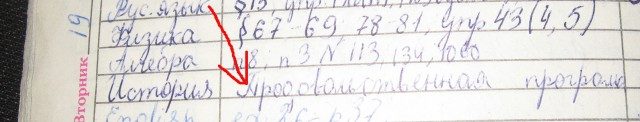 19
Вторник
Рус. язык § 13, упр.
Физика § 67-69, 78-81, упр 43 (4, 5)
Алгебра п 8; п 3 N 113, 134, 1060
История Продовольственная програма
English